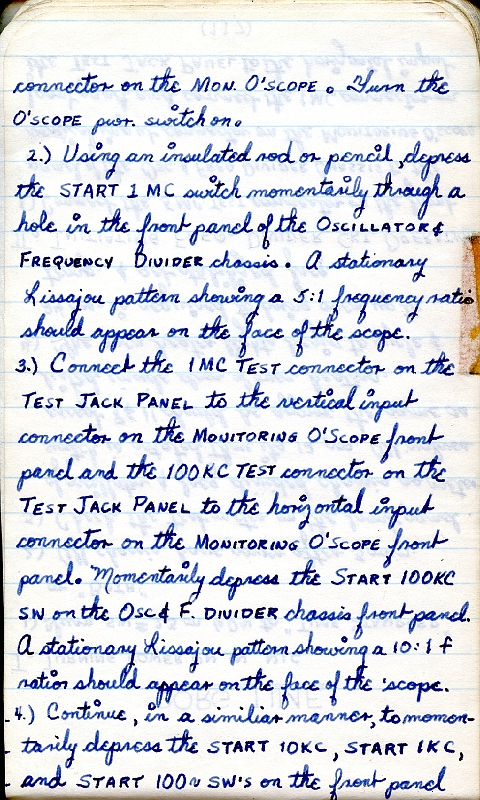 connector on the MON. O'SCOPE. Turn the
O'SCOPE pwr. switch on.
2.) Using an insulated rod or pencil, depress
the START 1 MC switch momentarily through a
hole in the front panel of the OSCILLATOR &
FREQUENCY DIVIDER chassis. A stationary
Lissajou pattern showing a 5:1 frequency ratio
should appear on the face of the scope.
3.) Connect the 1MC TEST connector on the
TEST JACK PANEL to the vertical input
connector on the MONITORING O'SCOPE front
panel and the 100KC TEST connector on the
TEST JACK PANEL to the horizontal input
connector on the MONITORING O'SCOPE front
panel. Momentarily depress the START 100KC
SW on the OSC & F. DIVIDER chassis front panel.
A stationary Lissajou pattern showing a 10:1 f
ratio should appear on the face of the 'scope.
4.) Continue, in a similiar manner, to momen-
tarily depress the START 10KC, START 1KC,
and START 100~ SW'S on the front panel